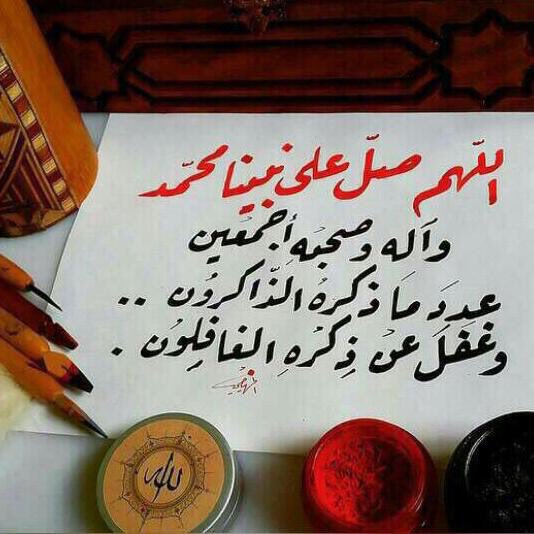 اللّهم صلّ على نبينا محمّد
وآله وصحبه أجمعين
عدد مَا ذكرهُ الذّاكرُون ..
وغفلَ عنْ ذِكْرهِ الغافِلوُن .
الله